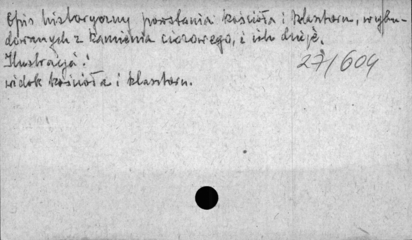 Opis historyczny powstania kościoła i klasztoru, wybu-
dowanych z kamienia ciosowego, i ich dzieje.
Ilustracja:
widok kościoła i klasztoru.
27/604